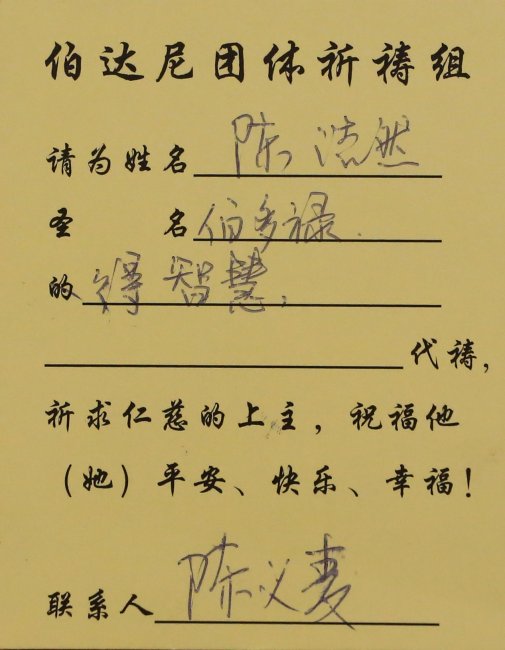 伯达尼团体祈祷组
请为姓名 陈浩然
圣 名 伯多禄.
的 得智慧;
代祷,
祈求仁慈的上主,祝福他
(她)平安、快乐、幸福!
联系人 陈义麦